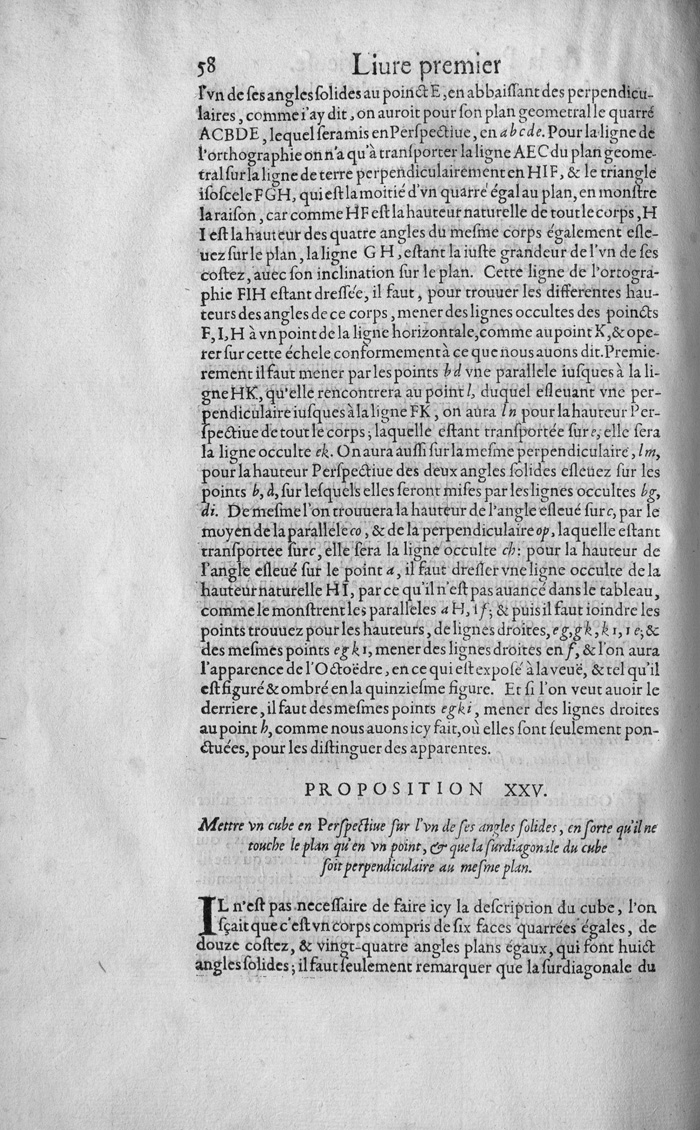 58 Liure premier
l'vn de ſes angles ſolides au poinct E, en abbaiſſant des perpendicu-
laires, comme i'ay dit, on auroit pour ſon plan geometral le quarré
ACBDE, lequel ſera mis en Perſpectiue, en abcde. Pour la ligne de
l'orthographie on n'a qu'à tranſporter la ligne AEC du plan geome-
tral ſur la ligne de terre perpendiculairement en HIF, & le triangle
iſoſcele FGH, qui eſt la moitié d'vn quarré égal au plan, en monſtre
la raiſon, car comme HF eſt la hauteur naturelle de tout le corps, H
I eſt la hauteur des quatre angles du meſme corps également eſle-
uez ſur le plan, la ligne G H, eſtant la iuſte grandeur de l'vn de ſes
coſtez, auec ſon inclination ſur le plan. Cette ligne de l'ortogra-
phie FIH eſtant dreſſée, il faut, pour trouuer les differentes hau-
teurs des angles de ce corps, mener des lignes occultes des poincts
F, I, H à vn point de la ligne horizontale, comme au point K, & ope-
rer ſur cette échele conformement à ce que nous auons dit. Premie-
rement il faut mener par les points bd vne parallele iuſques à la li-
gne HK, qu'elle rencontrera au point l, duquel eſleuant vne per-
pendiculaire iuſques à la ligne FK, on aura ln pour la hauteur Per-
ſpectiue de tout le corps; laquelle eſtant tranſportée ſur e, elle ſera
la ligne occulte ek. On aura auſſi ſur la meſme perpendiculaire, lm,
pour la hauteur Perſpectiue des deux angles ſolides eſleuez ſur les
points b, d, ſur leſquels elles ſeront miſes par les lignes occultes bg,
di. De meſme l'on trouuera la hauteur de l'angle eſleué ſur c, par le
moyen de la parallele co, & de la perpendiculaire op, laquelle eſtant
tranſportée ſur c, elle ſera la ligne occulte ch: pour la hauteur de
l'angle eſleué ſur le point a, il faut dreſſer vne ligne occulte de la
hauteur naturelle HI, par ce qu'il n'eſt pas auancé dans le tableau,
comme le monſtrent les paralleles a H, I f; & puis il faut ioindre les
points trouuez pour les hauteurs, de lignes droites, eg, gk, k ı, ı e; &
des meſmes points eg k ı, mener des lignes droites en f, & l'on aura
l'apparence de l'Octoëdre, en ce qui eſt expoſé à la veuë, & tel qu'il
eſt figuré & ombré en la quinzieſme figure. Et ſi l'on veut auoir le
derriere, il faut des meſmes points egki, mener des lignes droites
au point h, comme nous auons icy fait, où elles ſont ſeulement pon-
ctuées, pour les diſtinguer des apparentes.
PROPOSITION XXV.
Mettre vn cube en Perſpectiue ſur l'vn de ſes angles ſolides, en ſorte qu'il ne
touche le plan qu'en vn point, & que la ſurdiagonale du cube
ſoit perpendiculaire au meſme plan.
IL n'eſt pas neceſſaire de faire icy la deſcription du cube, l'on
ſçait que c'eſt vn corps compris de ſix faces quarrées égales, de
douze coſtez, & vingt-quatre angles plans égaux, qui font huict
angles ſolides; il faut ſeulement remarquer que la ſurdiagonale du